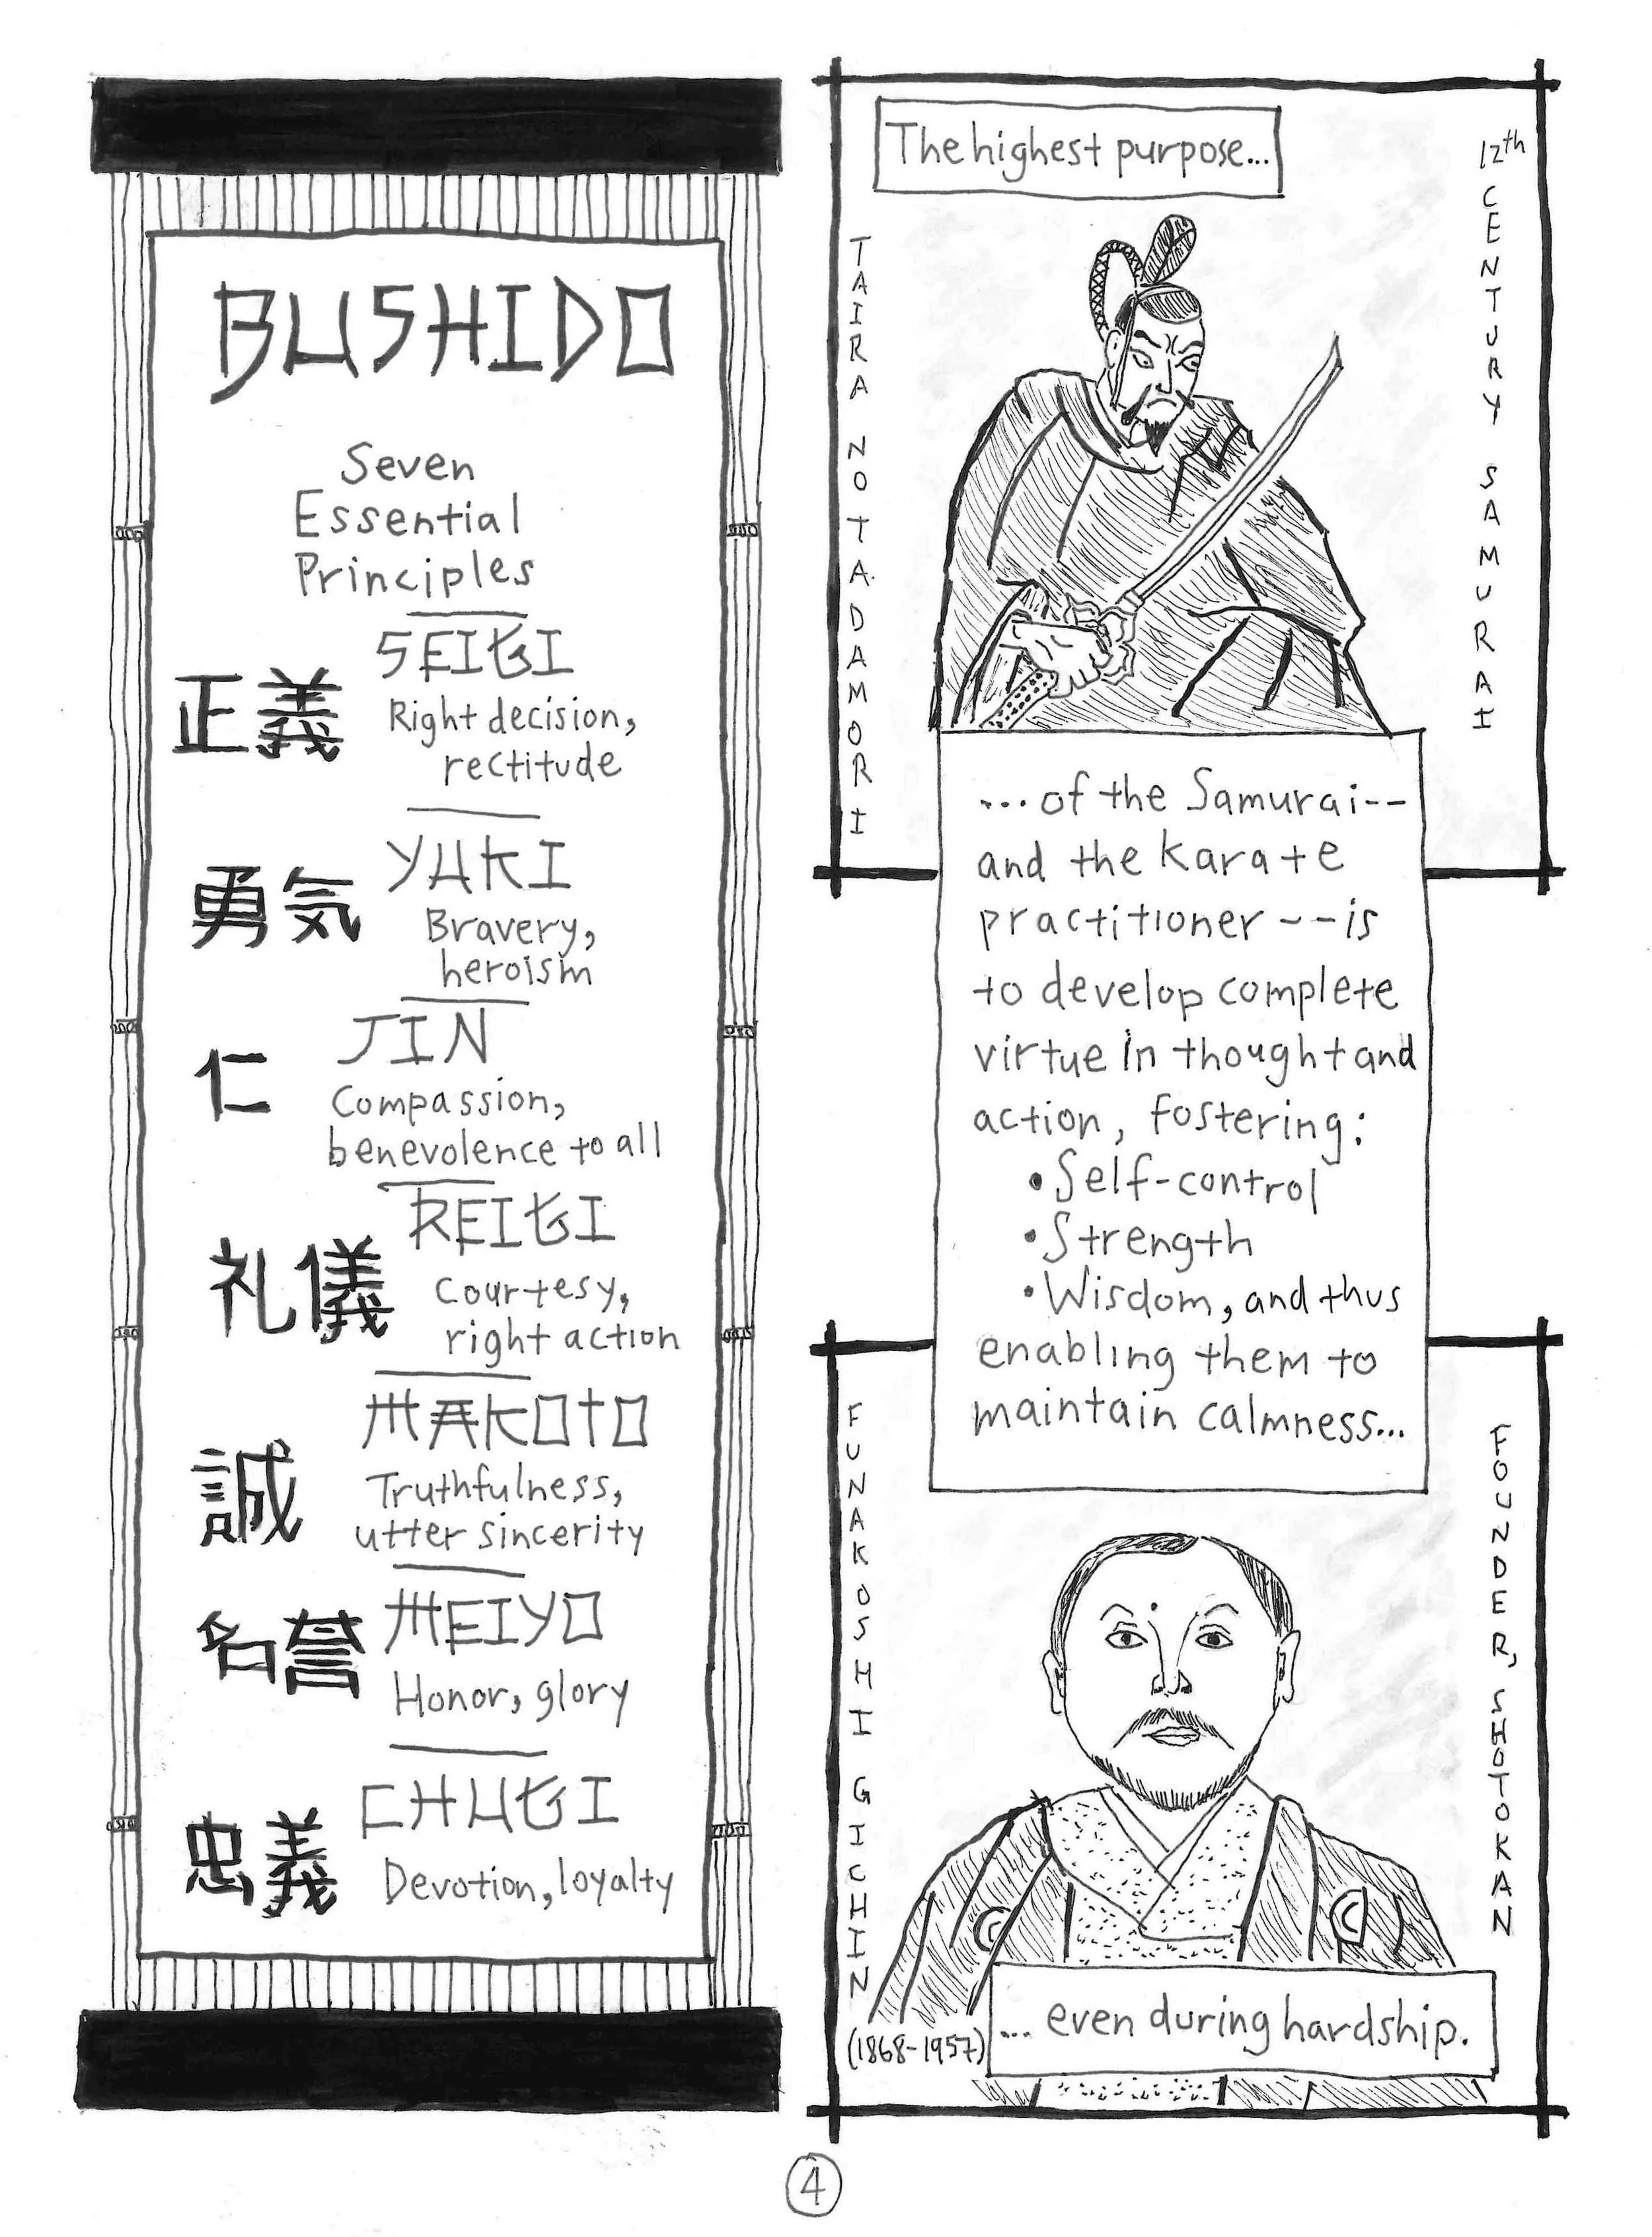 BUSHIDO
Seven
Essential
Principles
正義
SEIGI
Right decision,
rectitude
勇気
YUKI
Bravery,
heroism
仁
JIN
Compassion,
benevolence to all
礼儀
REIGI
Courtesy,
right action
誠
MAKOTO
Truthfulness,
utter sincerity
名誉
MEIYO
Honor, glory
忠義
CHUGI
Devotion, loyalty
The highest purpose...
TAIRA NO TADAMORI
12th CENTURY SAMURAI
...of the Samurai--
and the karate
practitioner--is
to develop complete
virtue in thought and
action, fostering:
•Self-control
•Strength
•Wisdom, and thus
enabling them to
maintain calmness...
FUNAKOSHI GICHIN
(1868-1957)
FOUNDER, SHOTOKAN
... even during hardship.
4